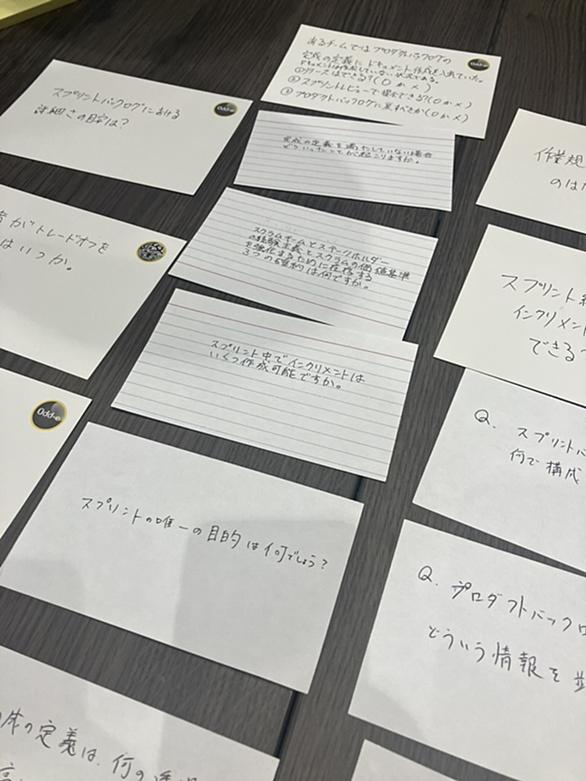 あるチームではプロダクトバックログの
完成の定義にドキュメント作成も入れていた。
ドキュメントは作成していない状況である。
①リリースはできる？(○か×)
②スプリントレビューで
③プロダクトバックログに戻すべきか(○か×)
Odd-e
スプリントバックログにおける
詳細さの目安は？
Odd-e
完成の定義を満たしていない場合
どういったことが起こりますか。
作業
のは
がトレードオフを
はいつか。
スクラムチームとステークホルダー
の経験主義とスクラムの価値基準
を強化するために存在する
3つの確約は何ですか。
スプリント
インクリメント
できる
スプリント中でインクリメントは
いくつ作成可能ですか。
Odd-e
Q. スプリントバ
何で構成
スプリントの唯一の目的は何でしょう？
Q. プロダクトバックロ
どういう情報を
の定義は、何の